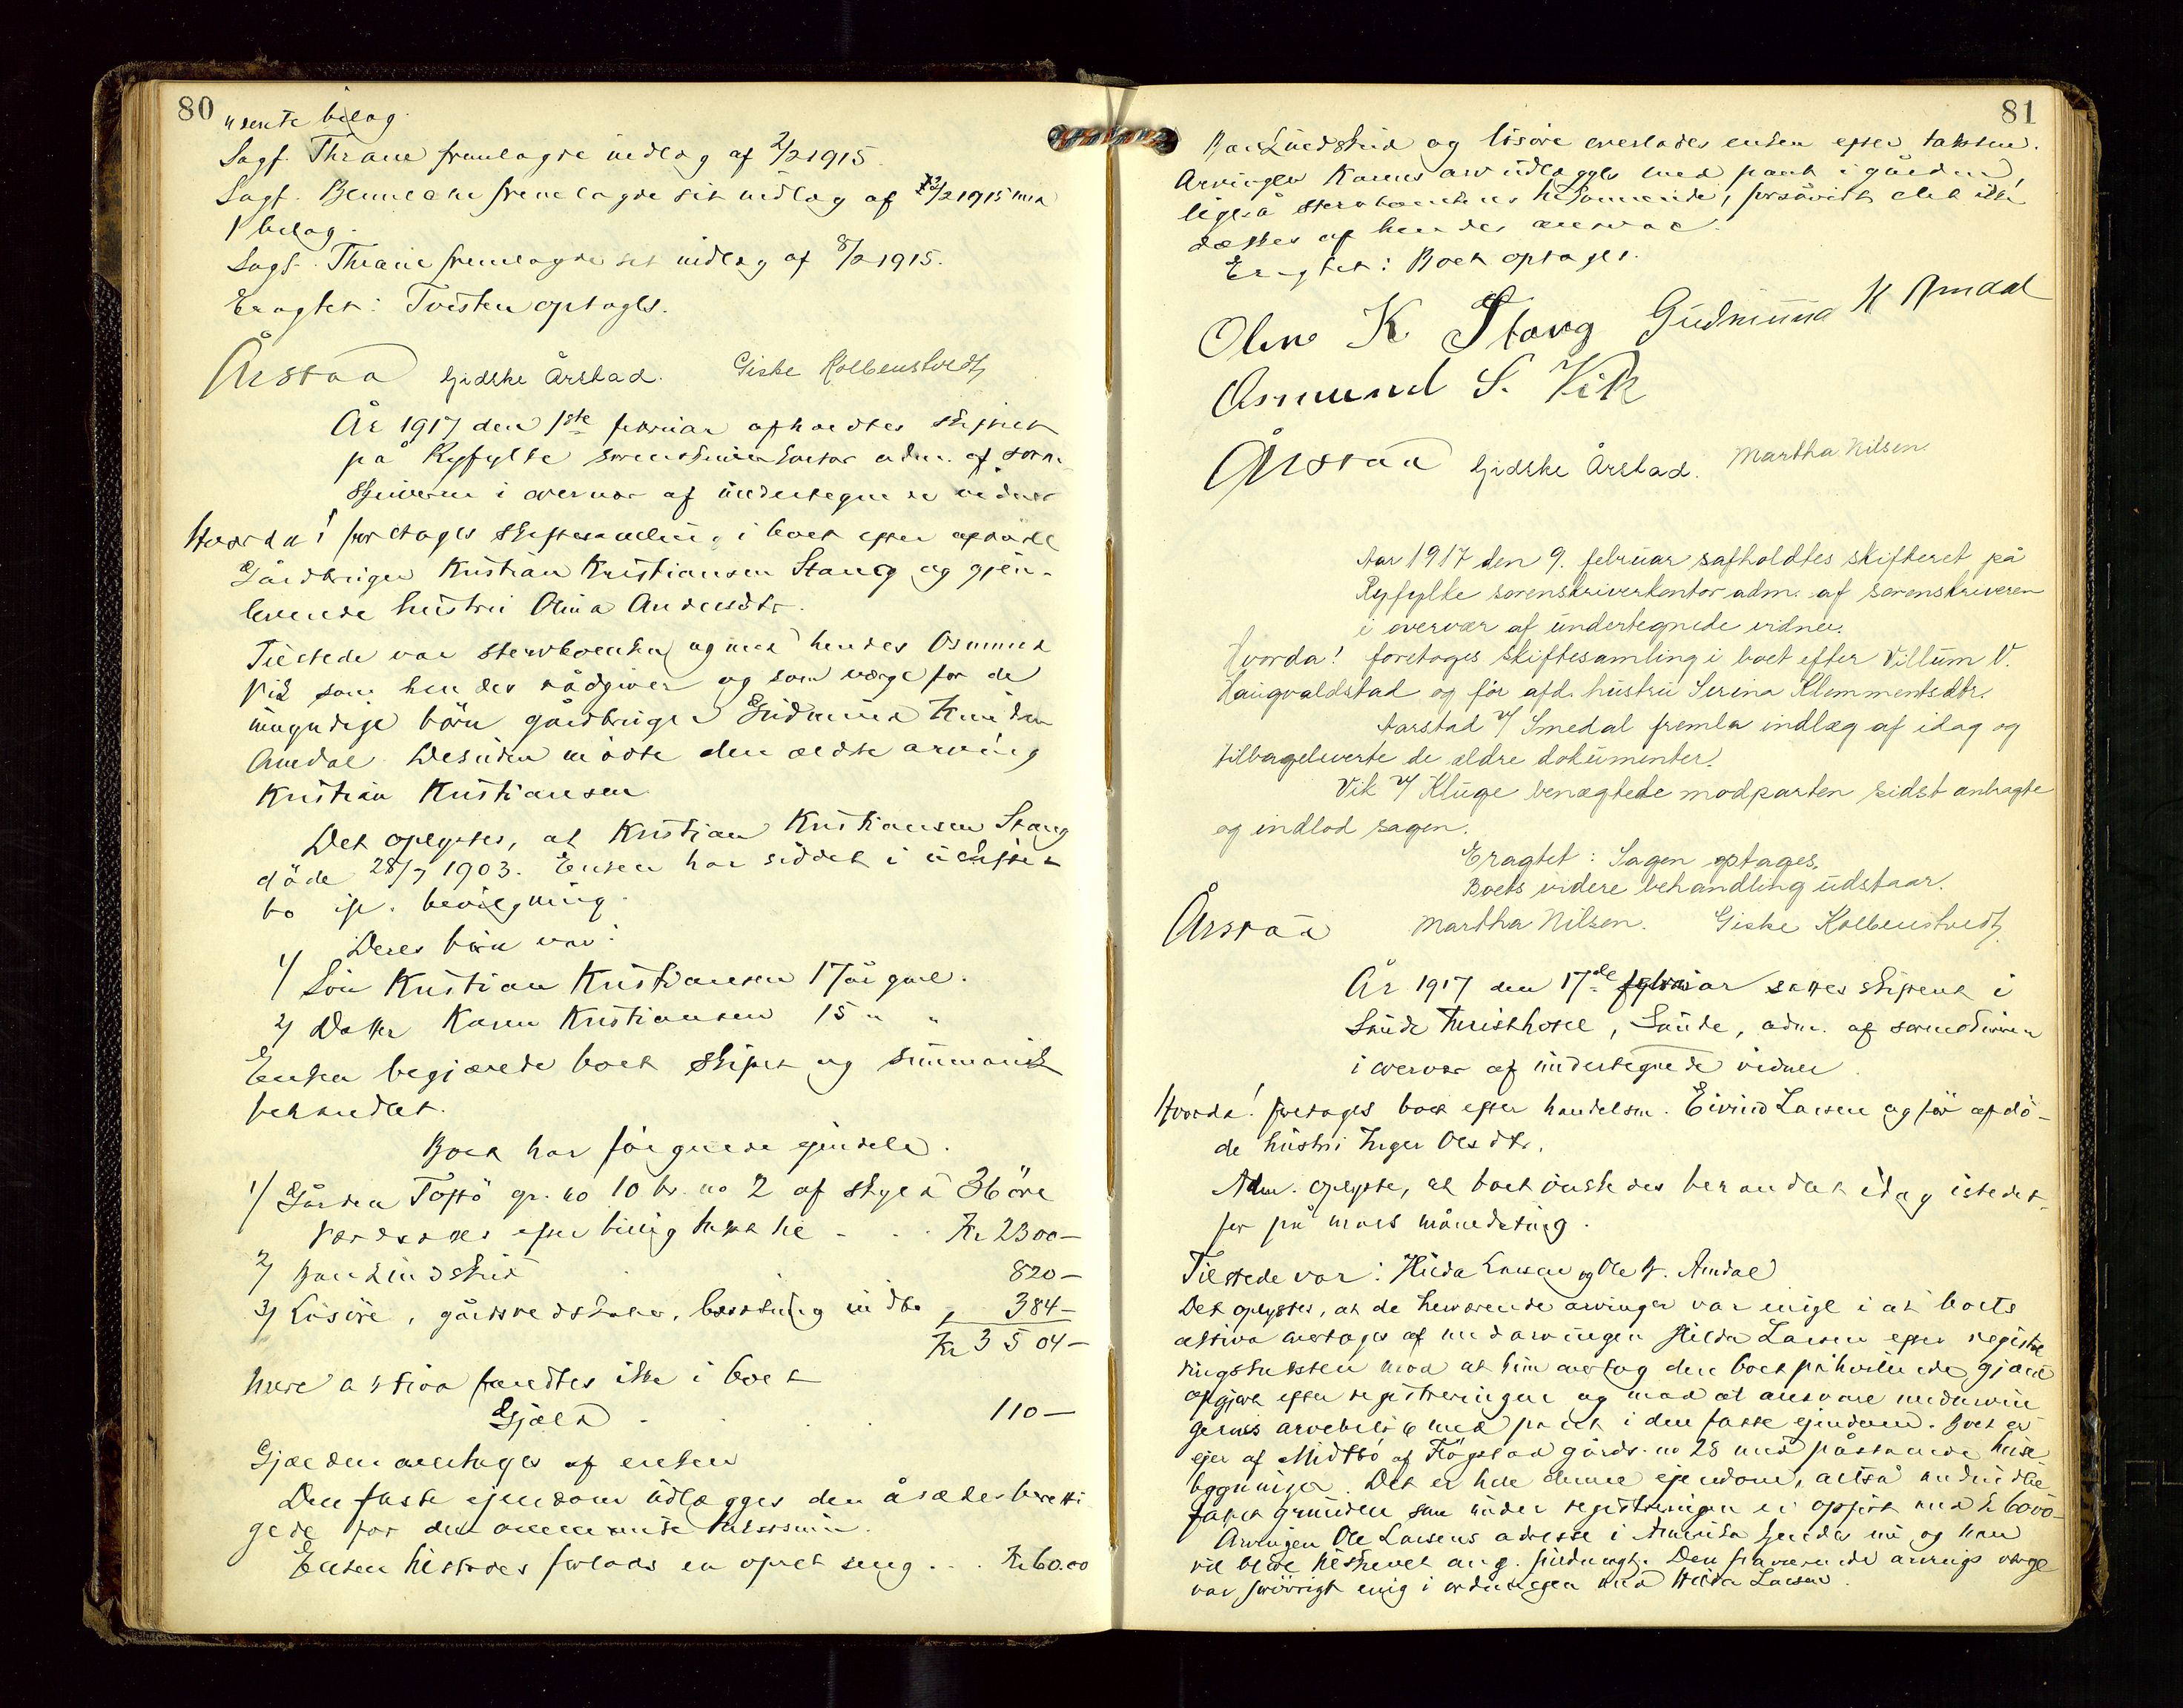 80
bilag.
Sagf. Thrane fremlagde indlag af 2/2 1915.
Sagf. fremlagde sit indlag af 1915 med
1 bilag.
Sagf. Thrane fremlagde sit indlæg af 8/2 1915.
Eragtet: Tvisten optages.
Årstad Gidske Årstad. Giske Kolbenstvedt
År 1917 den 1ste februar afholdtes skifteret
på Ryfylke sorenskriverkontor adm. af soren-
skriveren i overvær af undertegnede vidner
Hvorda! foretages skiftesamling i boet efter afdøde
Gårdbruger Kristian Kristiansen Stang og gjen-
levende hustru Olina Andersdtr.
Tilstede var sterkboenken og med hendes Osmund
Vik som hendes rådgiver og som værge for de
umyndige børn gårdbruger Gudmund Knudsen
Amdal. Desuden mødte den ældste arving
Kristian Kristiansen
Det oplystes, at Kristian Kristiansen Stang
døde 28/7 1903. Enken har siddet i uskiftet
bo if. bevilgning.
Deres børn var:
1/ Søn Kristian Kristiansen 17 år gml.
2/ Datter Karen Kristiansen 15 " "
Enken begjærede boet skiftet og summarisk
behandlet.
Boet har følgende eiendele.
1/ Gården Toftø gr. no 10 br. no 2 af skyld 36 øre
værdsattes efter billig takst til - . . Kr 2300 —
2/ Bankindskud 820 —
3/ Løsøre, gårdsredskaber, besætning indbo 384 —
Kr 3504 —
Mere aktiva fandtes ikke i boet
Gjæld . . . 110 —
Gjælden overtages af enken
Den faste ejendom udlægges den åsædesberetti-
gede for den takstsum.
Enken tilstodes forlods en opret seng . . . Kr 60.00
81
Bankindskud og løsøre overlades enken efter taksten.
Arvingen Karens arv udlægges med pant i gården,
ligeså sterkboenkens tilkommende, forsåvidt det ikke
dækkes af hendes ansvar.
Eragtet: Boet optages.
Oline K. Stang Gudmund K Amdal
Osmund S. Vik
Årstad Gidske Årstad. Martha Nilsen
Aar 1917 den 9. februar safholdtes skifteret på
Ryfylke sorenskriverkontor adm. af sorenskriveren
i overvær af undertegnede vidner.
Hvorda! foretoges skiftesamling i boet efter Villum V.
Haugvaldstad og før afd. hustru Serina Klemmentsdtr.
Aarstad v/ Smedal fremla indlæg af idag og
tilbageleverte de ældre dokumenter.
Vik v/ Kluge benægtede modparten sidst anbragte
og indlod sagen.
Eragtet: Sagen optages.
Boets videre behandling udstaar.
Årstad Martha Nilsen. Giske Kolbenstvedt
År 1917 den 17de februar sattes skifteret i
Sande Turisthotel, Sande, adm. af sorenskriveren
i overvær af undertegnede vidner.
Hvorda! foretoges boet efter handelsm. Eivind Larsen og før afdø-
de hustru Inger Olsdtr.
Adm. oplyste, at boet ønskedes behandlet idag istedet-
for på mars månedsting.
Tilstede var: Hilda Larsen og Ole Amdal
Det oplystes, at de herværende arvinger var enige i at boets
aktiva overtages af medarvingen Hilda Larsen efter registre
ringstaksten mod at hun overtog den boet påhvilende gjæld
opgjort efter registreringen og mod at ansvare medarvin
gernes arvebeløb med pant i den faste ejendom. Boet er
ejer af Midtbø af Høgstad gårds. no 28 med påstående huse
bygninger. Det er hele denne ejendom, altså
grunden som under registreringen er opført med kr 6000 —
Arvingen Ole Larsens adresse i Amerika kjendes nu og han
vil blive tilskrevet ang. fuldmagt. Den fraværende arvings værge
var forøvrigt enig i ordningen med Hilda Larsen.